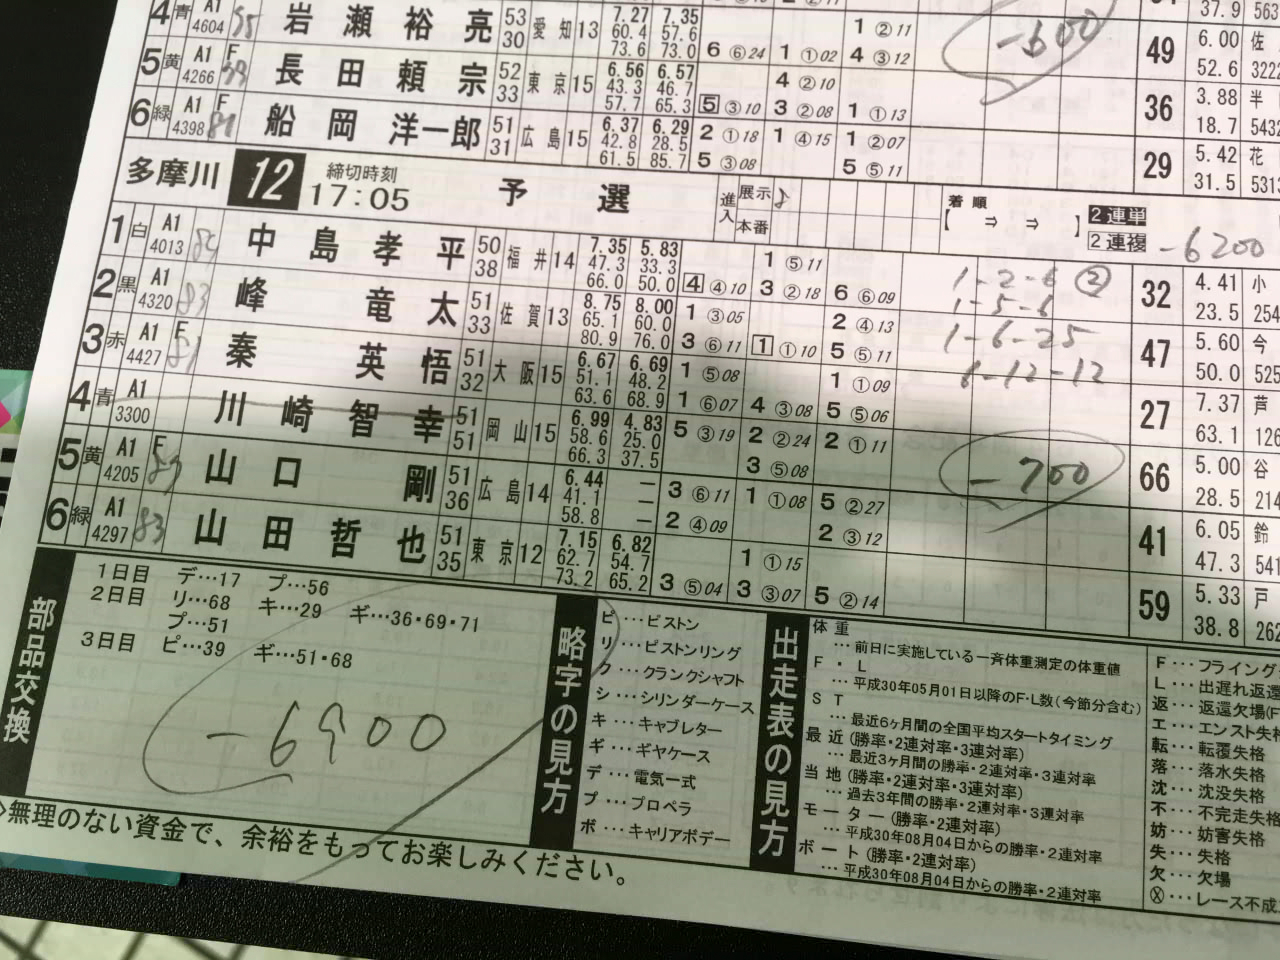 4 青 A1 4604 55 岩瀬裕亮 53 30 愛知13 7.27 60.4 73.6 7.35 57.6 73.0 6 ⑥24 1 ①02 1 ②11 4 ③12 -600 49 6.00 52.6 佐 3222
5 黄 A1 4266 F 長田頼宗 52 33 東京15 6.56 43.3 57.7 6.57 46.7 65.3 5 ③10 4 ②10 3 ②08 1 ①13 36 3.88 18.7 半 5432
6 緑 A1 4398 F 81 船岡洋一郎 51 31 広島15 6.37 42.8 61.5 6.29 28.5 85.7 2 ①18 5 ③08 1 ④15 1 ②07 5 ⑤11 29 5.42 31.5 花 5313
多摩川 12 締切時刻 17:05 予選 進入 展示 本番 着順【 ⇒ ⇒ 】 2連単 2連複 -6200
1 白 A1 4013 中島孝平 50 38 福井14 7.35 47.3 66.0 5.83 33.3 50.0 4 ④10 1 ⑤11 3 ②18 6 ⑥09 1-2-6 ② 32 4.41 23.5 小 254
2 黒 A1 4320 83 峰竜太 51 33 佐賀13 8.75 65.1 80.9 8.00 60.0 76.0 1 ③05 3 ⑥11 1 ①10 2 ④13 5 ⑤11 1-5-6 1-6-25 47 5.60 50.0 今 525
3 赤 A1 4427 F 81 秦英悟 51 32 大阪15 6.67 51.1 63.6 6.69 48.2 68.9 1 ⑤08 1 ⑥07 4 ③08 1 ①09 5 ⑤06 6-12-12 27 7.37 63.1 芦 126
4 青 A1 3300 川崎智幸 51 51 岡山15 6.99 58.6 66.3 4.83 25.0 37.5 5 ③19 2 ②24 3 ⑤08 2 ①11 -700 66 5.00 28.5 谷 214
5 黄 A1 4205 F 山口剛 51 36 広島14 6.44 41.1 58.8 — — — 3 ⑥11 2 ④09 1 ①08 5 ②27 2 ③12 41 6.05 47.3 鈴 541
6 緑 A1 4297 83 山田哲也 51 35 東京12 7.15 62.7 73.2 6.82 54.7 65.2 3 ⑤04 1 ①15 3 ③07 5 ②14 59 5.33 38.8 戸 262
部品交換
1日目 デ…17 プ…56
2日目 リ…68 キ…29 ギ…36・69・71
プ…51
3日目 ピ…39 ギ…51・68
-6900
略字の見方
ピ…ピストン
リ…ピストンリング
ク…クランクシャフト
シ…シリンダーケース
キ…キャブレター
ギ…ギヤケース
デ…電気一式
プ…プロペラ
ボ…キャリアボデー
出走表の見方
体重
…前日に実施している一斉体重測定の体重値
F・L
…平成30年05月01日以降のF・L数(今節分含む)
ST
…最近6ヶ月間の全国平均スタートタイミング
最近(勝率・2連対率・3連対率)
…最近3ヶ月間の勝率・2連対率・3連対率
当地(勝率・2連対率・3連対率)
…過去3年間の勝率・2連対率・3連対率
モーター(勝率・2連対率)
…平成30年08月04日からの勝率・2連対率
ボート(勝率・2連対率)
…平成30年08月04日からの勝率・2連対率
F…フライング
L…出遅れ返還
返…返還欠場(F
エ…エンスト失格
転…転覆失格
落…落水失格
沈…沈没失格
不…不完走失格
妨…妨害失格
失…失格
欠…欠場
Ⓧ…レース不成
無理のない資金で、余裕をもってお楽しみください。